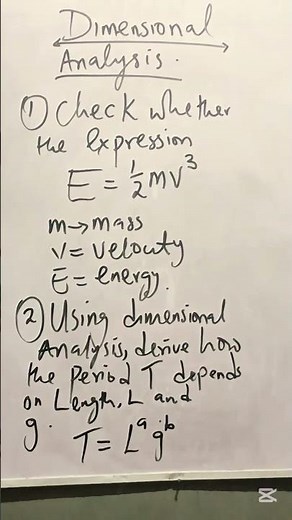 Dimensional
Analysis.
① Check whether
the expression
E = ½mv³
m → mass
V = Velocity
E = energy.
② Using dimensional
Analysis, derive how
the period T depends
on Length, L and
g.
T = Lᵃgᵇ